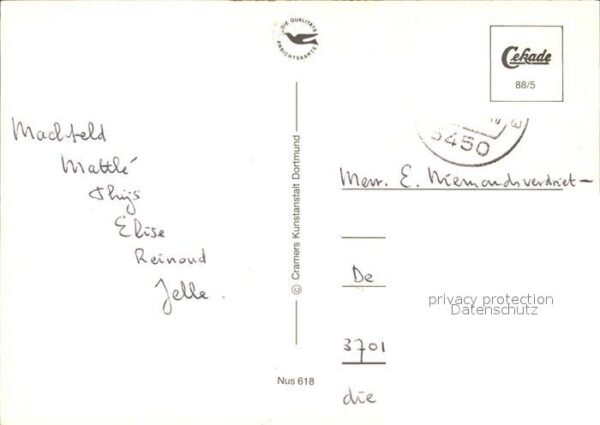 DIE QUALITÄTS
ANSICHTSKARTE
Cekade
88/5
5450
Machteld
Matthé
Thijs
Elise
Reinoud
Jelle.
© Cramers Kunstanstalt Dortmund
Mevr. E. Niemandsverdriet-
De
3701
die
privacy protection
Datenschutz
Nus 618